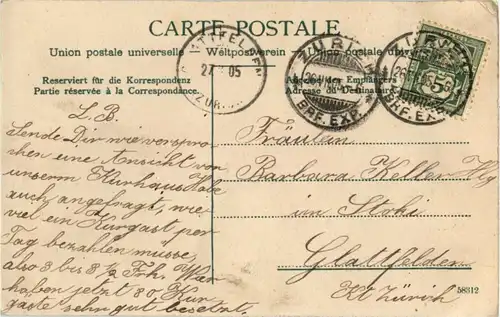 CARTE POSTALE
Union postale universelle. — Weltpostverein — Unione postale
Reserviert für die Korrespondenz
Partie réservée à la Correspondance.
Adresse des Empfängers
Adresse du Destinataire
GLATTFELDEN
27 05
ZÜRICH
BRF. EXP.
BRF. EXP.
5
L. B.
Sende Dir wie verspro-
chen eine Ansicht von
unserm Kurhaus Habe
auch angefragt, wie
viel ein Kurgast per
Tag bezahlen müsse,
also 8 bis 8 1/2 Frk. Wir
haben jetzt 80 Kur
gäste sehr gut besetzt.
Fräulein
Barbara Keller Hg
im
Glattfelden
Kt Zürich
58312